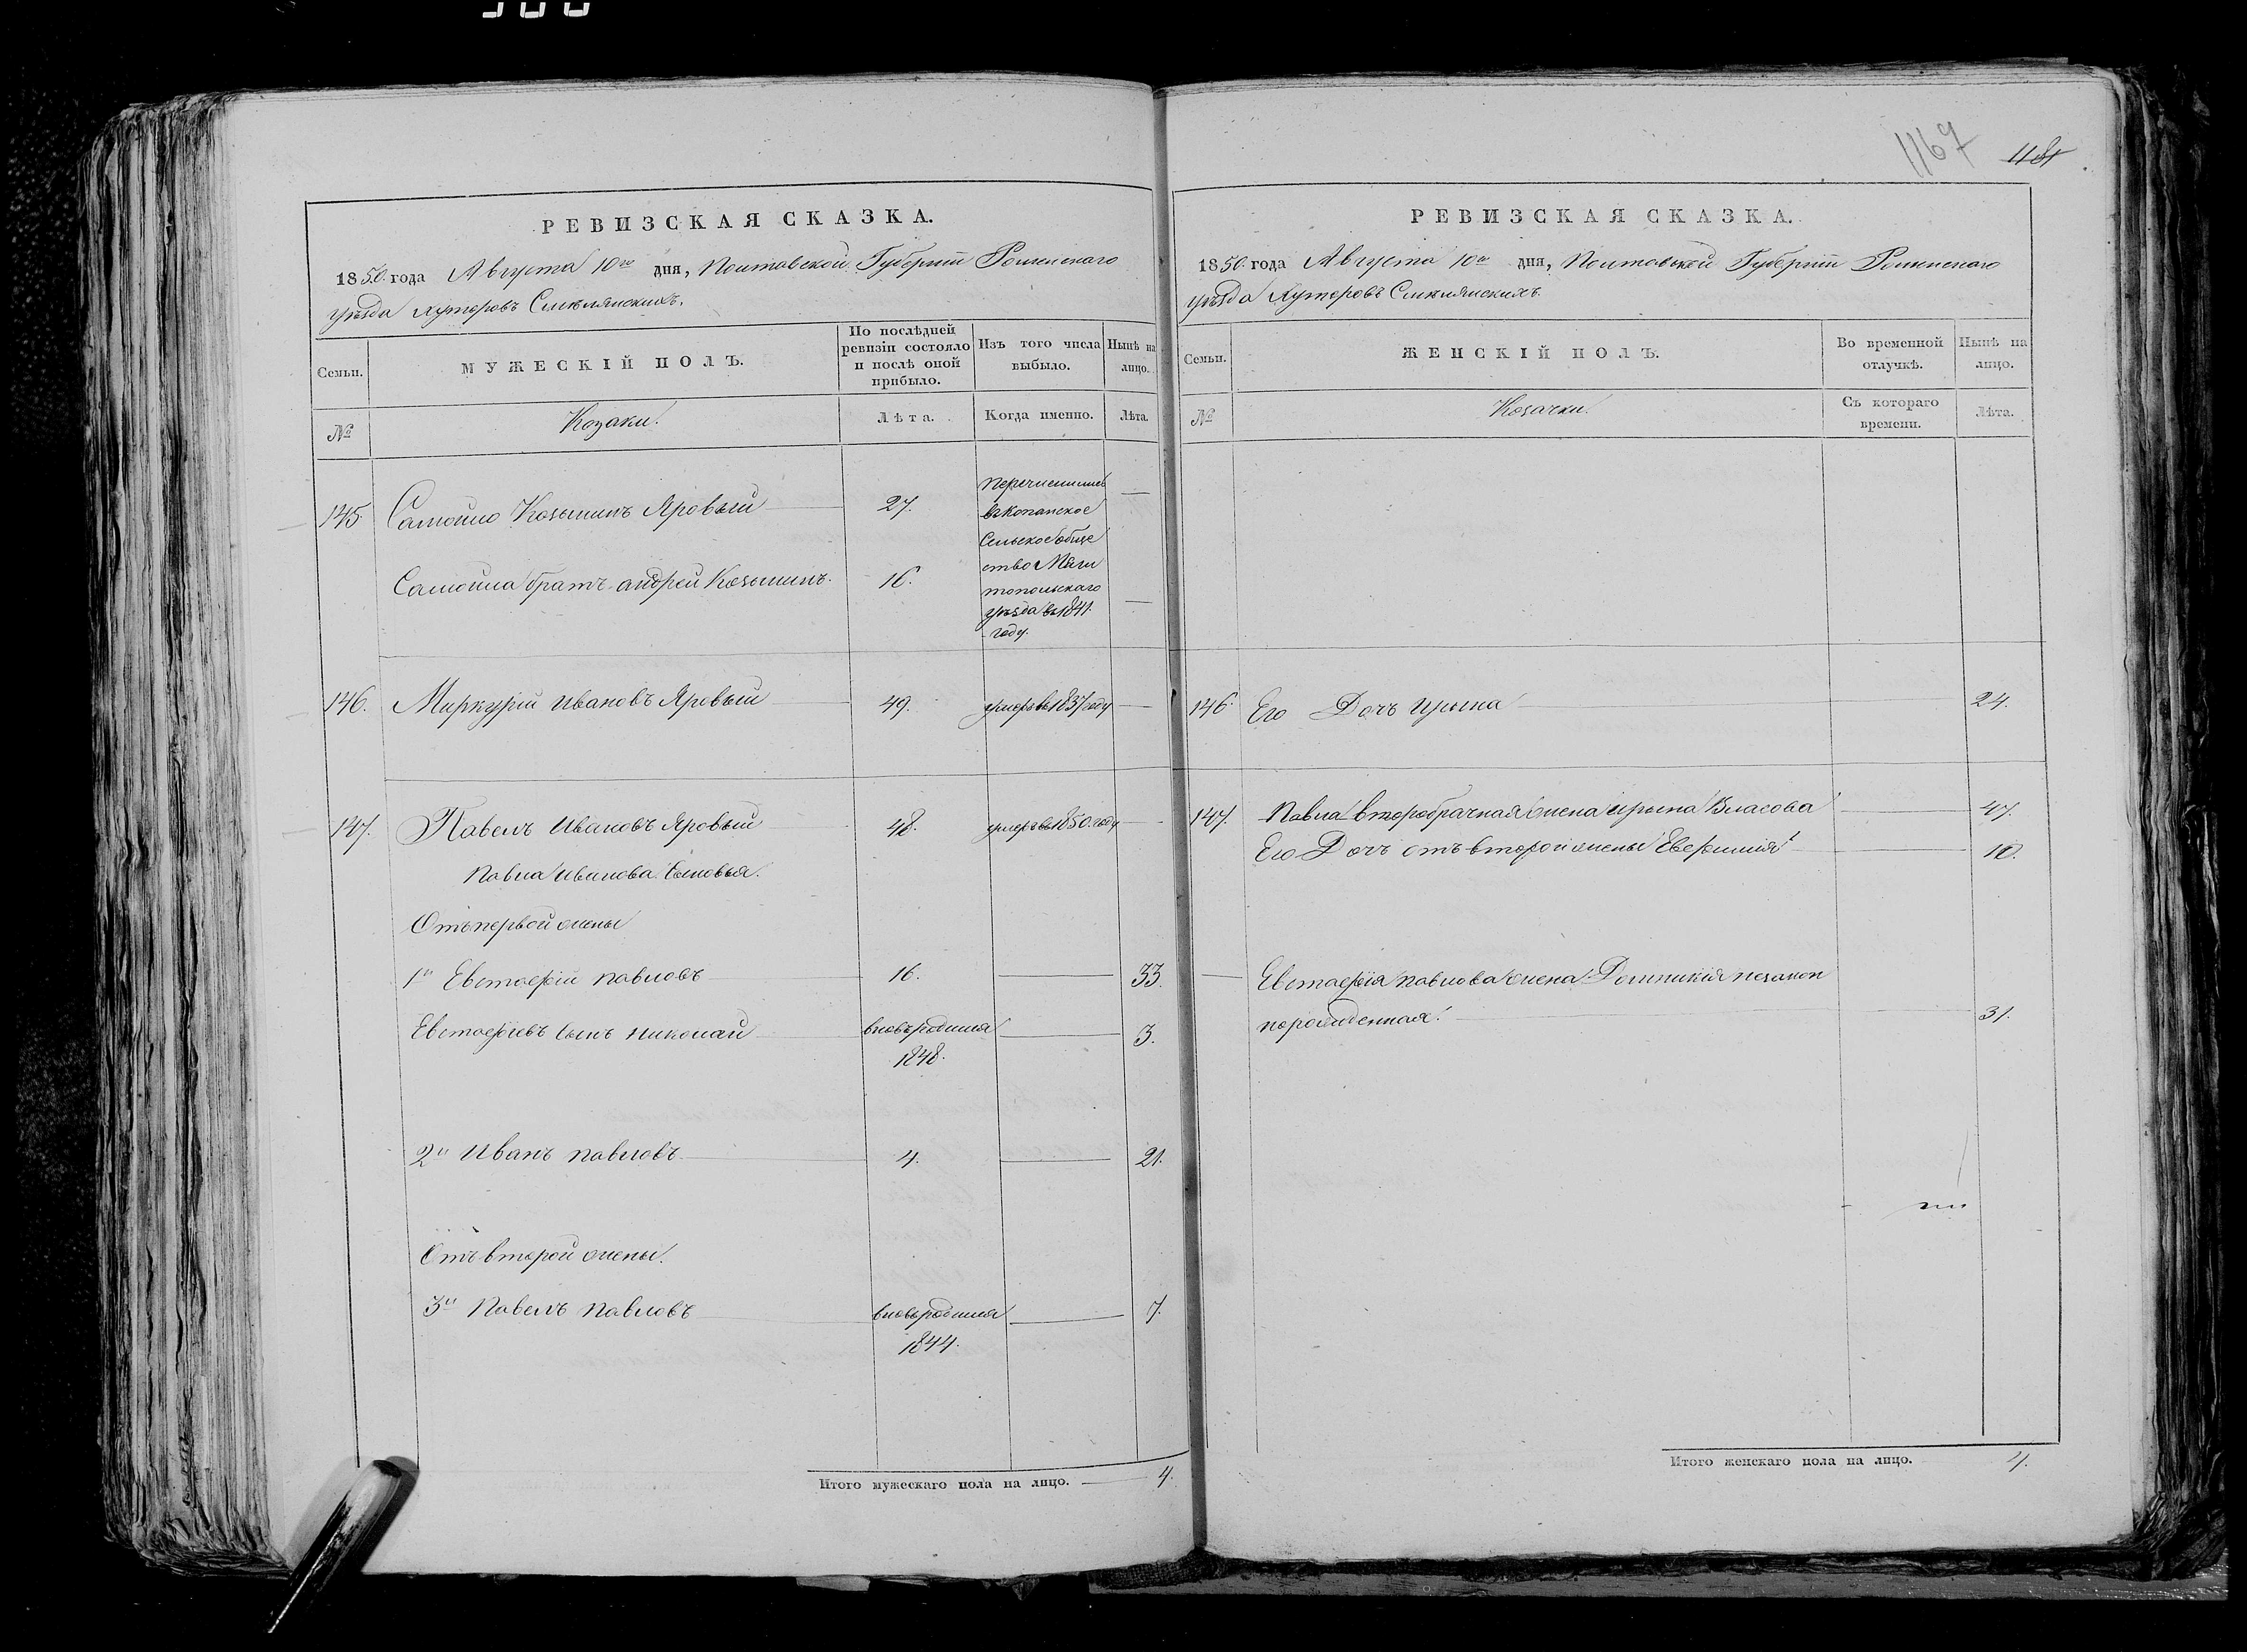 1167 1181
РЕВИЗСКАЯ СКАЗКА.
1850. года Августа 10го дня, Полтавской Губерніи Роменскаго
уѣзда Хуторовъ Смѣлянскихъ.
Семьи.
МУЖЕСКІЙ ПОЛЪ.
По послѣдней ревизіи состояло и послѣ оной прибыло.
Изъ того числа выбыло.
Нынѣ на лицо.
№
Козаки.
Лѣта.
Когда именно.
Лѣта.
145. Самойло Козьминъ Яровый 27.
Самойла братъ андрей Козьминъ. 16.
Перечислились
въ Копанское
Сельское обще
ство Мели
топольскаго
уѣзда въ 1841.
году.
146. Меркурій Ивановъ Яровый 49. умеръ въ 1837 году
147. Павелъ Ивановъ Яровый 48. умеръ въ 1850. году
Павла Иванова Сыновья.
Отъ первой жены
1й Евстафій Павловъ 16. 33.
Евстафіевъ Сынъ Николай вновь родился 3.
1848.
2й Иванъ Павловъ 4. 21.
Отъ второй жены.
3й Павелъ Павловъ вновь родился 7.
1844.
Итого мужескаго пола на лицо. 4.
РЕВИЗСКАЯ СКАЗКА.
1850 года Августа 10го дня, Полтавской Губерніи Роменскаго
уѣзда Хуторовъ Смѣлянскихъ.
Семьи.
ЖЕНСКІЙ ПОЛЪ.
Во временной отлучкѣ.
Нынѣ на лицо.
№
Козачки.
Съ котораго времени.
Лѣта.
146. Его Дочь Ирына 24.
147. Павла второбрачная жена Ирына Власова 47.
Его Дочь отъ второй жены Евфимія 10.
Евстафія Павлова жена Домникія незакон
норожденная. 31.
Итого женскаго пола на лицо. 4.